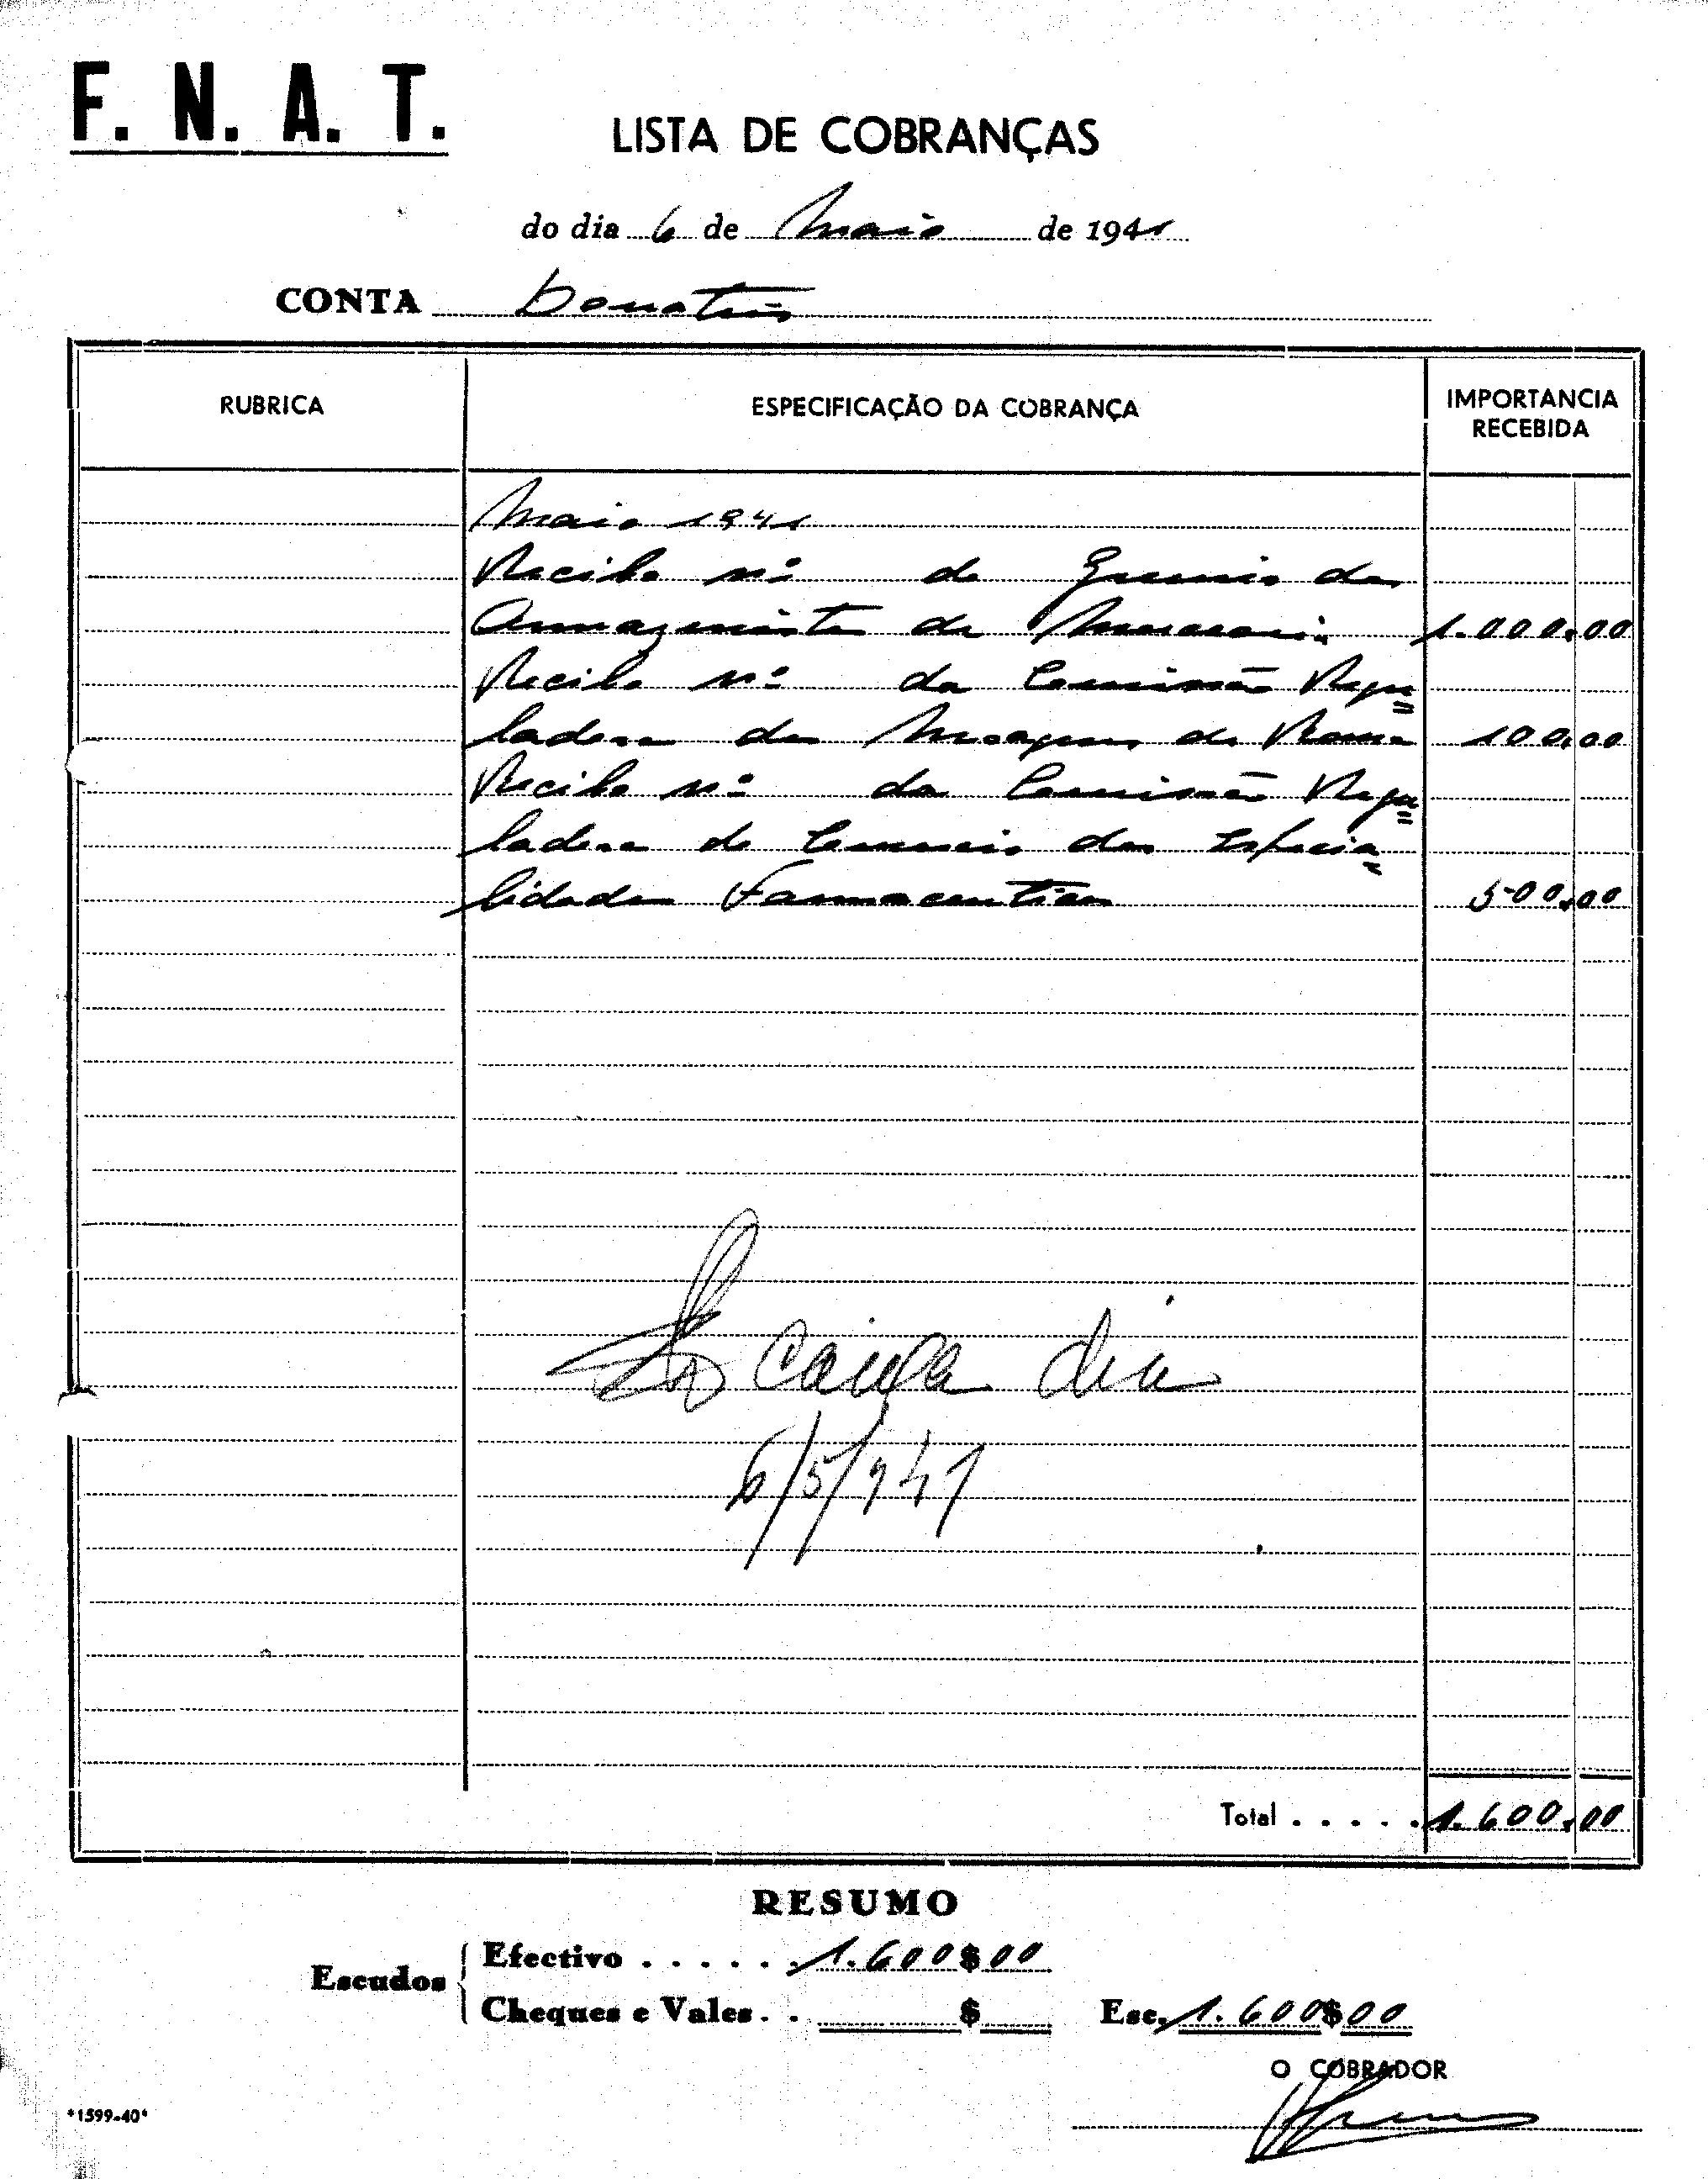 F. N. A. T.
LISTA DE COBRANÇAS
do dia 6 de Maio de 1941
CONTA Donativos
RUBRICA
ESPECIFICAÇÃO DA COBRANÇA
IMPORTANCIA
RECEBIDA
Maio 1941
Recibo nº do Gremio dos
Armazenistas de Mercearia 1.000,00
Recibo nº da Comissão Regu
ladora das Moagens de Rama 100,00
Recibo nº da Comissão Regu
ladora do Comercio das Especia
lidades Farmaceuticas 500,00
caixa
6/5/941
Total . . . . . 1.600,00
RESUMO
Escudos
Efectivo . . . . . . 1.600$00
Cheques e Vales . . $
Esc. 1.600$00
O COBRADOR
*1599-40*